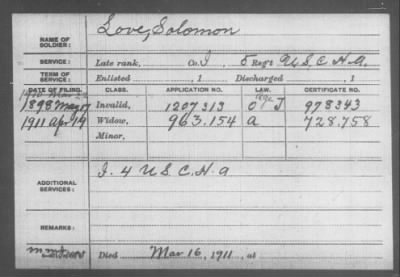 NAME OF SOLDIER: Love, Solomon
SERVICE: Late rank, Co. I, 5 Reg't U.S.C.H.A.
TERM OF SERVICE: Enlisted , 1 Discharged , 1
DATE OF FILING. CLASS. APPLICATION NO. LAW. CERTIFICATE NO.
1898 May 17 Invalid, 1207313 J 978343
1911 Apr 19 Widow, 963.154 a 728.758
Minor,
ADDITIONAL SERVICES: I. 4 U S C. H. a
REMARKS:
Died Mar 16, 1911, at